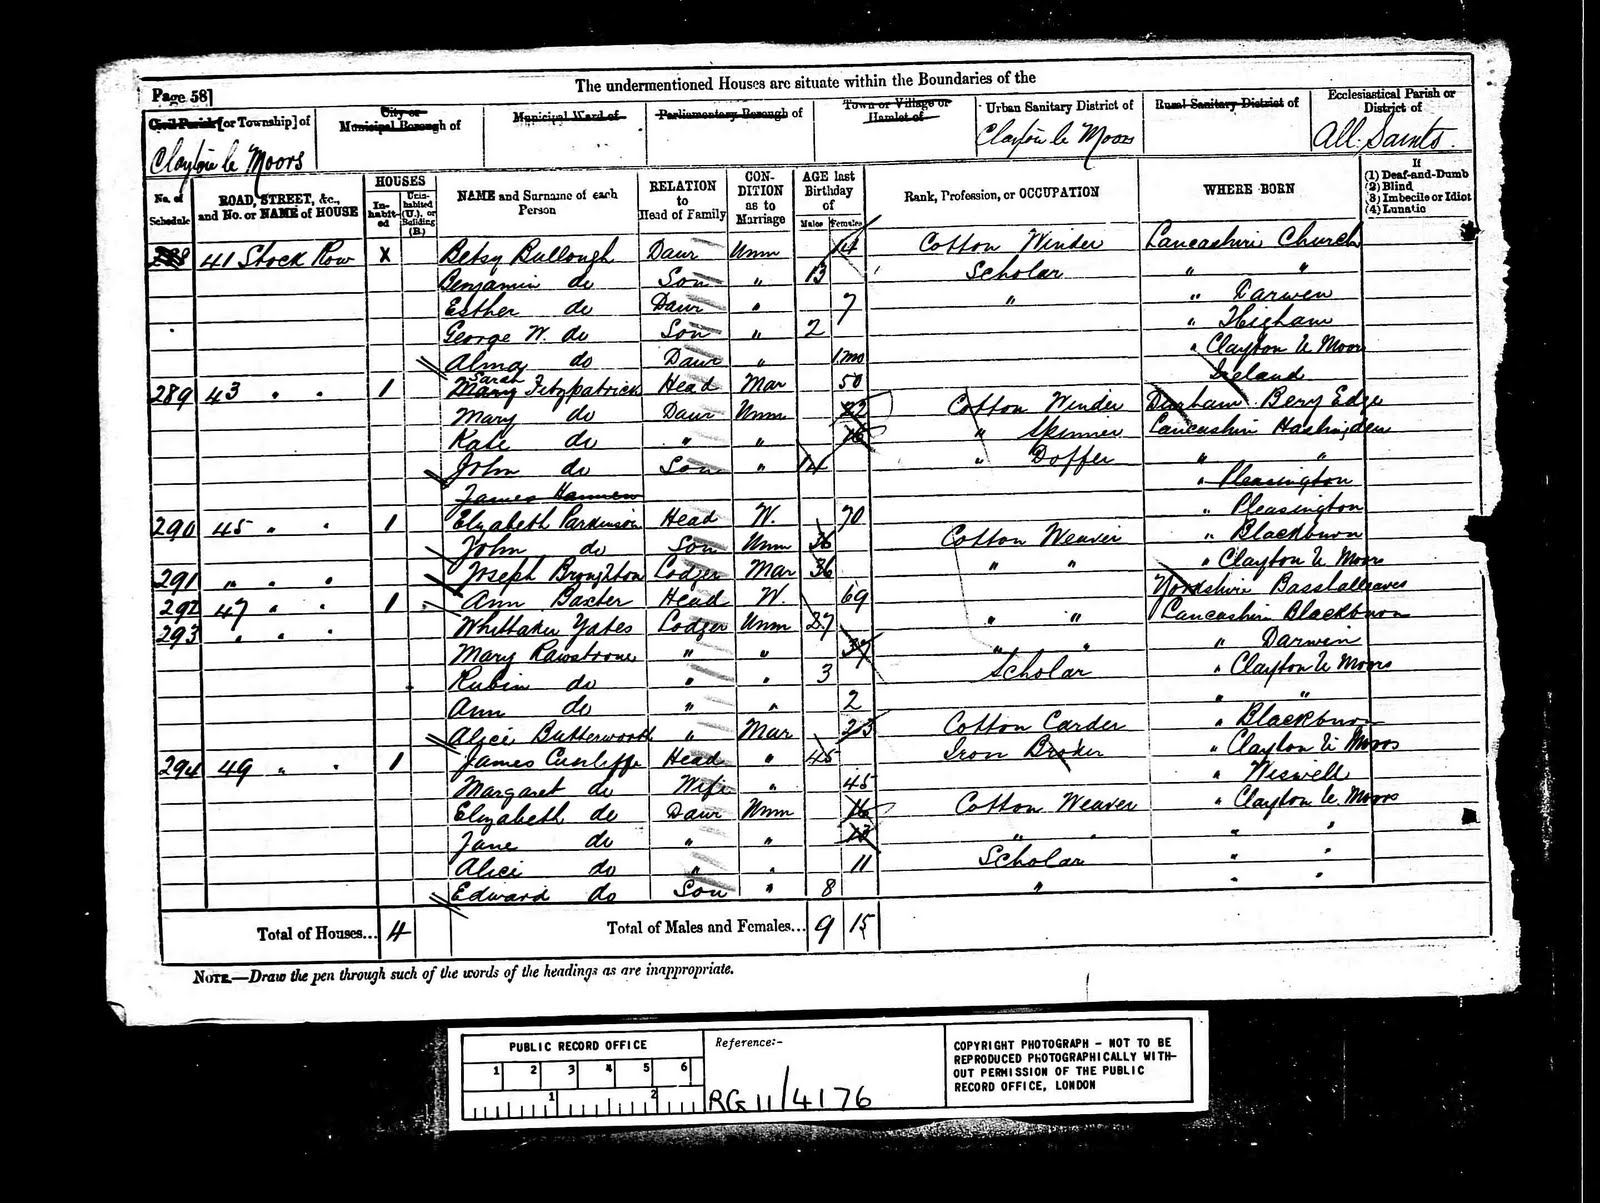 The undermentioned Houses are situate within the Boundaries of the
Page 58]
Civil Parish [or Township] of
City or Municipal Borough of
Municipal Ward of
Parliamentary Borough of
Town or Village or Hamlet of
Urban Sanitary District of
Rural Sanitary District of
Ecclesiastical Parish or District of
Clayton le Moors
Clayton le Moors
All Saints
No. of Schedule
ROAD, STREET, &c., and No. or NAME of HOUSE
HOUSES
Inhabited
Uninhabited (U.), or Building (B.)
NAME and Surname of each Person
RELATION to Head of Family
CONDITION as to Marriage
AGE last Birthday of
Males
Females
Rank, Profession, or OCCUPATION
WHERE BORN
If
(1) Deaf-and-Dumb
(2) Blind
(3) Imbecile or Idiot
(4) Lunatic
288 41 Stock Row X Betsy Bullough Daur Unm 14 Cotton Winder Lancashire Church
Benjamin do Son " 13 Scholar " "
Esther do Daur " 7 " " Darwen
George W. do Son " 2 " Higham
Alma do Daur " 1mo " Clayton le Moors
289 43 " " 1 Mary Sarah Fitzpatrick Head Mar 50 Ireland
Mary do Daur Unm 22 Cotton Winder Durham Bery Edge
Kate do " " 16 " Spinner Lancashire Haslingden
John do Son " 14 " Doffer " "
James Hannen " Pleasington
290 45 " " 1 Elizabeth Parkinson Head W. 70 " Pleasington
John do Son Unm 36 Cotton Weaver " Blackburn
291 " " " Joseph Broughton Lodger Mar 36 " " " Clayton le Moors
292 47 " " 1 Ann Baxter Head W. 69 Yorkshire
293 " " " Whittaker Yates Lodger Unm 27 " " Lancashire Blackburn
Mary Rawstrone " " 37 " " " Darwin
Rubin do " " 3 Scholar " Clayton le Moors
Ann do " " 2 " "
Alice Butterworth " Mar 23 Cotton Carder " Blackburn
294 49 " " 1 James Cunliffe Head " 45 Iron Broker " Clayton le Moors
Margaret do Wife " 45 " Wiswell
Elizabeth do Daur Unm 16 Cotton Weaver " Clayton le Moors
Jane do " " 13 " " " "
Alice do " " 11 Scholar " "
Edward do Son " 8 " " "
Total of Houses... 4 Total of Males and Females... 9 15
NOTE.—Draw the pen through such of the words of the headings as are inappropriate.
PUBLIC RECORD OFFICE
1 2 3 4 5 6
1 2
Reference:-
RG 11/4176
COPYRIGHT PHOTOGRAPH - NOT TO BE
REPRODUCED PHOTOGRAPHICALLY WITH-
OUT PERMISSION OF THE PUBLIC
RECORD OFFICE, LONDON